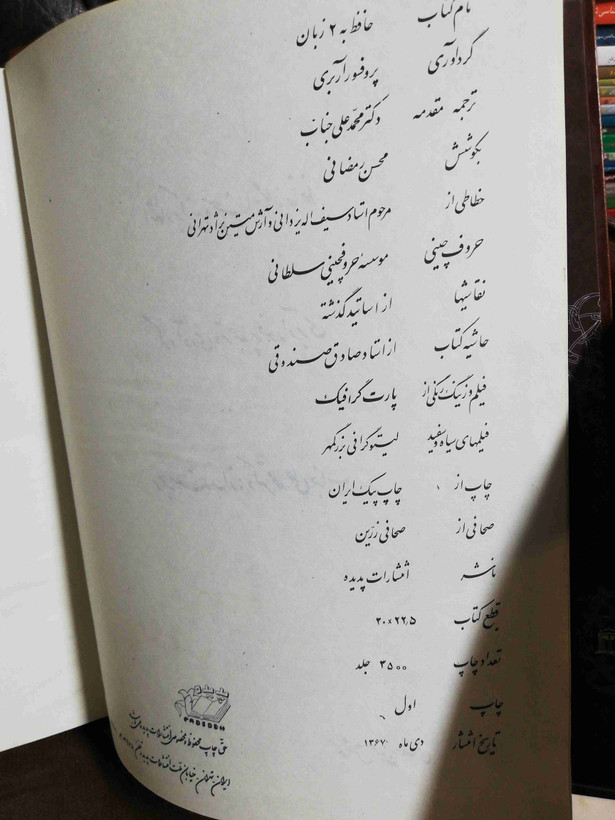 نام کتاب حافظ به ۲ زبان
گردآوری پروفسور آربری
ترجمه مقدمه دکتر محمّد علی جناب
بکوشش محسن رمضانی
خطاطی از مرحوم استاد سیف اله یزدانی و آرش متین نژاد تهرانی
حروف چینی موسسه حروفچینی سلطانی
نقاشیها از اساتید گذشته
حاشیه کتاب از استاد صادق صندوقی
فیلم و زینک رنگی از پارت گرافیک
فیلمهای سیاه و سفید لیتوگرافی بزرگمهر
چاپ از چاپ پیک ایران
صحافی از صحافی زرّین
ناشر انتشارات پدیده
قطع کتاب ۳۰×۲۲٫۵
تعداد چاپ ۳۵۰۰ جلد
چاپ اول
تاریخ انتشار دی ماه ۱۳۶۷
پدیده
PADIDEH
حقّ چاپ محفوظ و مخصوص انتشارات پدیده
ایران، تهران، خیابان انتشارات پدیده